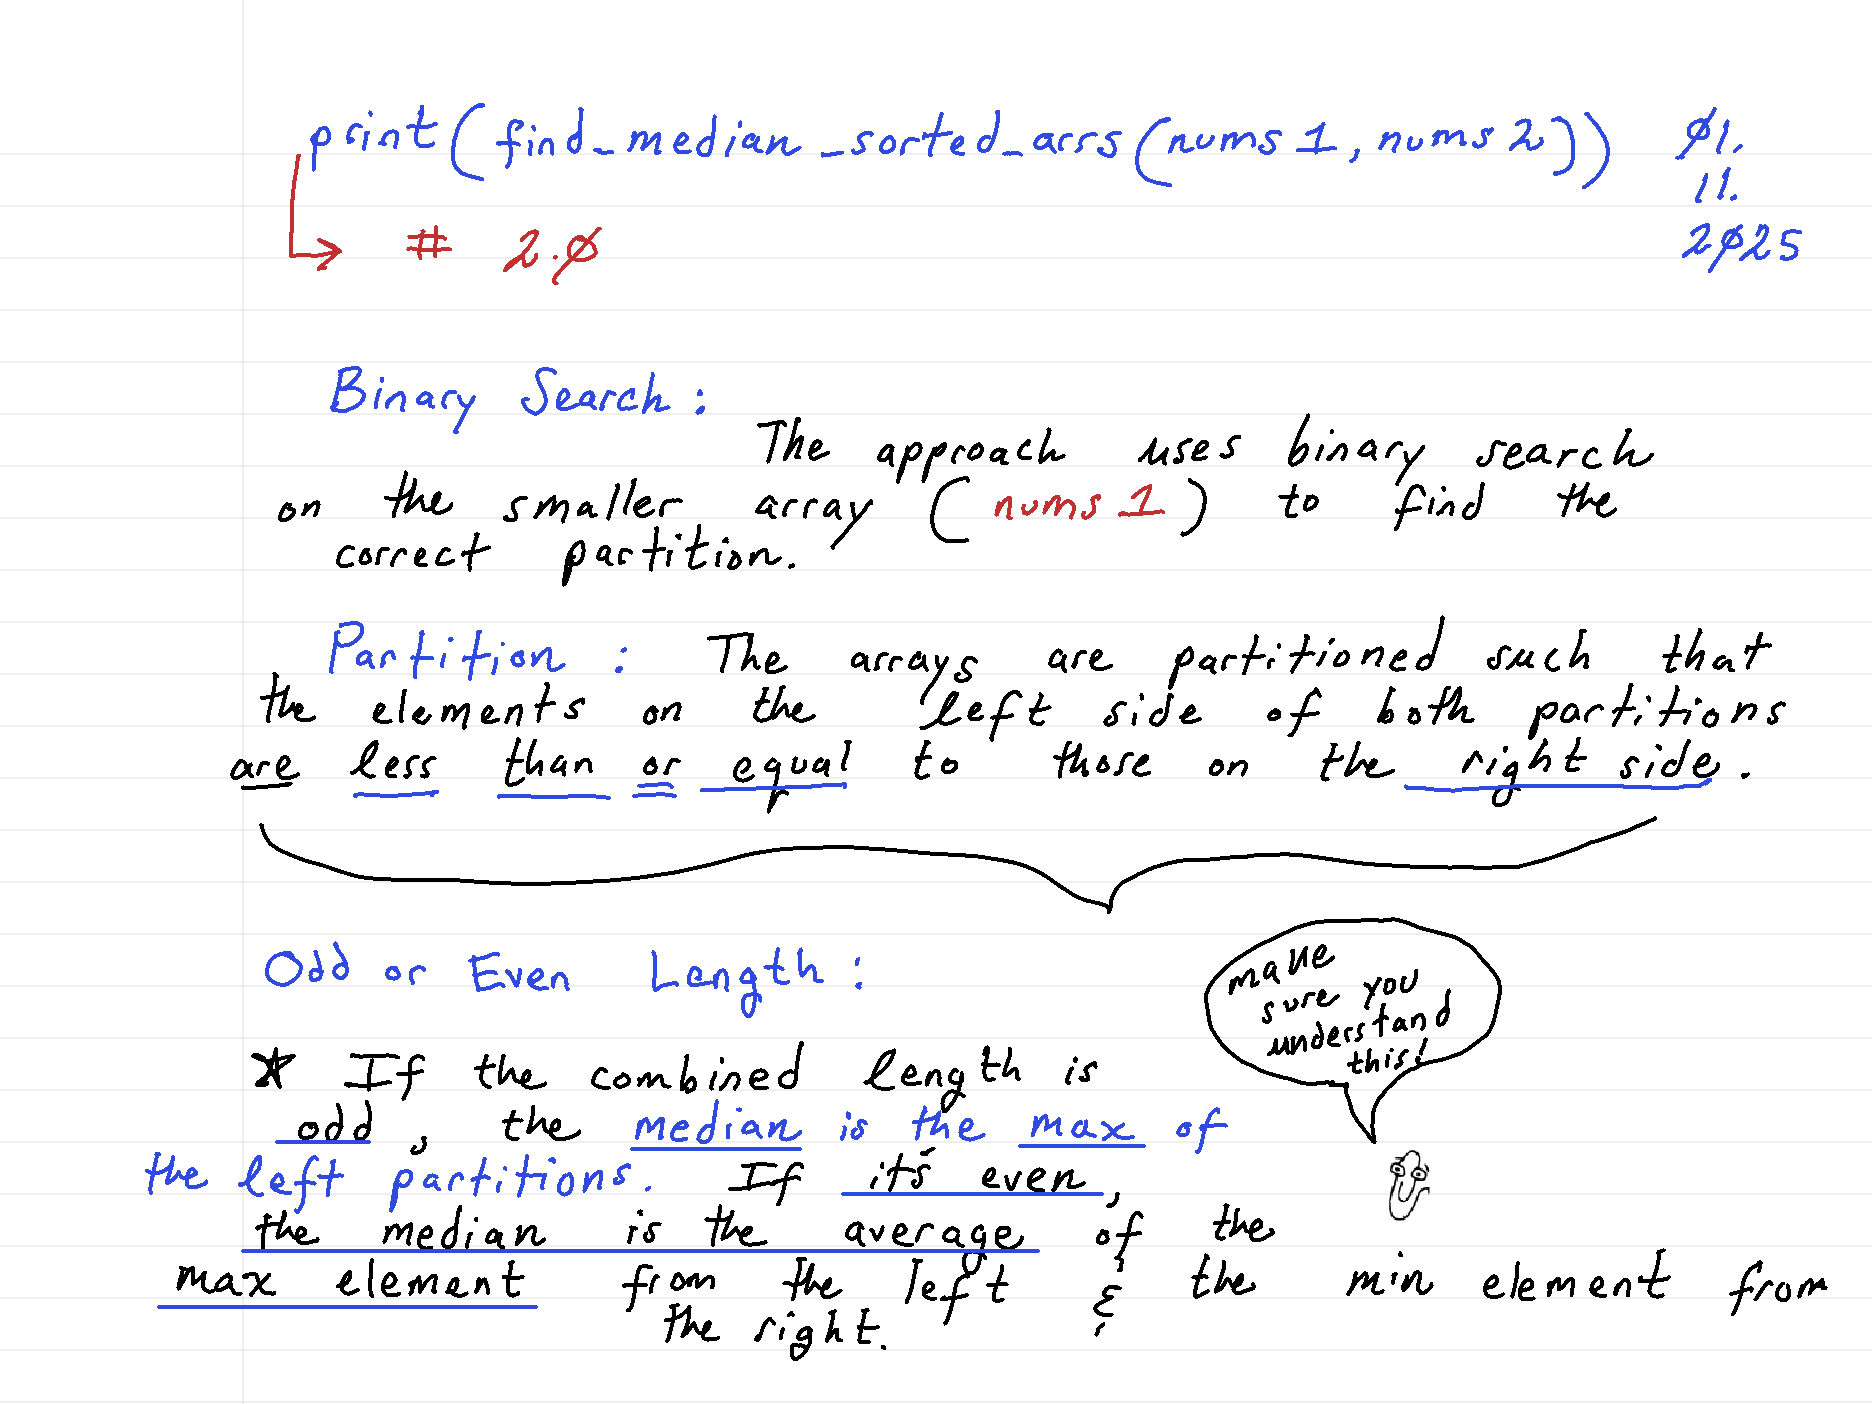 print(find_median_sorted_arrs(nums1, nums2)) Ø1.
11.
# 2.Ø 2Ø25
Binary Search:
The approach uses binary search
on the smaller array (nums1) to find the
correct partition.
Partition: The arrays are partitioned such that
the elements on the left side of both partitions
are less than or equal to those on the right side.
Odd or Even Length:
make
sure you
understand
this!
* If the combined length is
odd, the median is the max of
the left partitions. If it's even,
the median is the average of the
max element from the left & the min element from
the right.